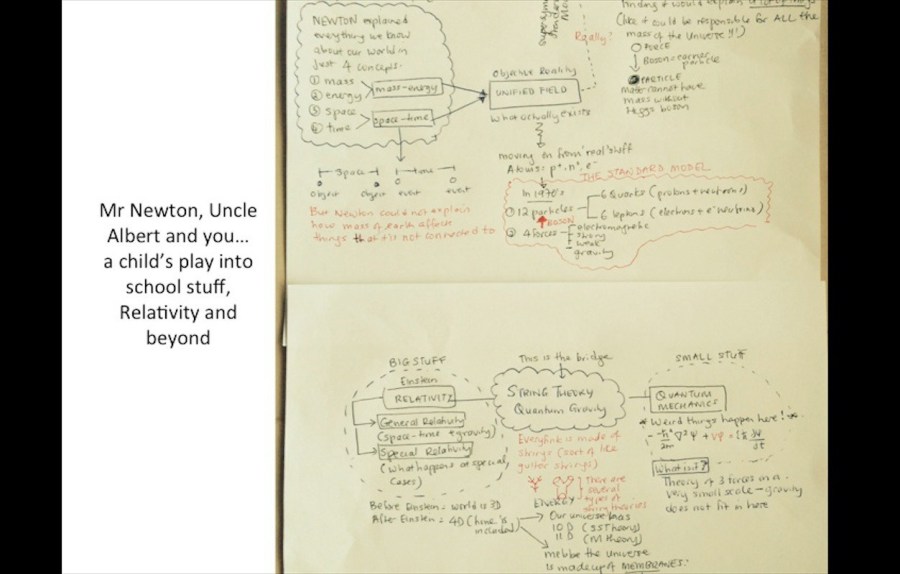 Mr Newton, Uncle
Albert and you...
a child's play into
school stuff,
Relativity and
beyond
NEWTON explained
everything we know
about our world in
just 4 concepts.
① mass
② energy
mass-energy
③ space
④ time
space-time
space
time
object
object
event
event
But Newton could not explain
how mass of earth affects
things that is not connected to
Really?
Objective Reality
UNIFIED FIELD
What actually exists
moving on from 'real' stuff
Atoms = p⁺, n°, e⁻
THE STANDARD MODEL
In 1970's
① 12 particles
6 Quarks (protons + neutrons)
6 leptons (electrons + e⁻ neutrinos)
BOSON
② 4 forces
electromagnetic
strong
weak
gravity
finding it would explain
(like it could be responsible for ALL the
mass of the Universe!!)
FORCE
Boson = carrier
particle
PARTICLE
Mater cannot have
mass without
Higgs boson
BIG STUFF
Einstein
RELATIVITY
General Relativity
(space-time + gravity)
Special Relativity
(what happens at special
cases)
Before Einstein = world is 3D
After Einstein = 4D (time is
included)
This is the bridge
STRING THEORY
Quantum Gravity
Everything is made of
strings (sort of like
guitar strings)
There are
several
types of
string theories
ENERGY
Our universe has
10 D (SS Theory)
11 D (M Theory)
mebbe the universe
is made up of MEMBRANES!
SMALL STUFF
QUANTUM
MECHANICS
* Weird things happen here! *
-ħ²/2m ∇²Ψ + VΨ = iħ ∂Ψ/∂t
What is it?
Theory of 3 forces on a
very small scale - gravity
does not fit in here